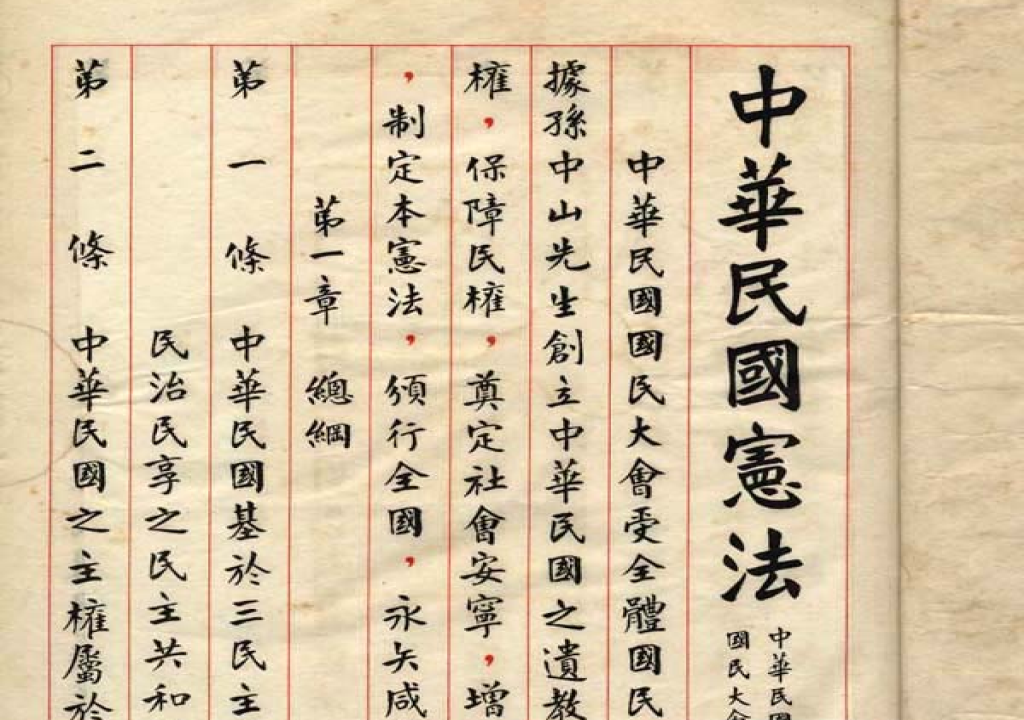 中華民國憲法
中華民國
國民大會
中華民國國民大會受全體國民
據孫中山先生創立中華民國之遺教
權，保障民權，奠定社會安寧，增
，制定本憲法，頒行全國，永矢咸
第一章 總綱
第一條 中華民國基於三民主
民治民享之民主共和
第二條 中華民國之主權屬於